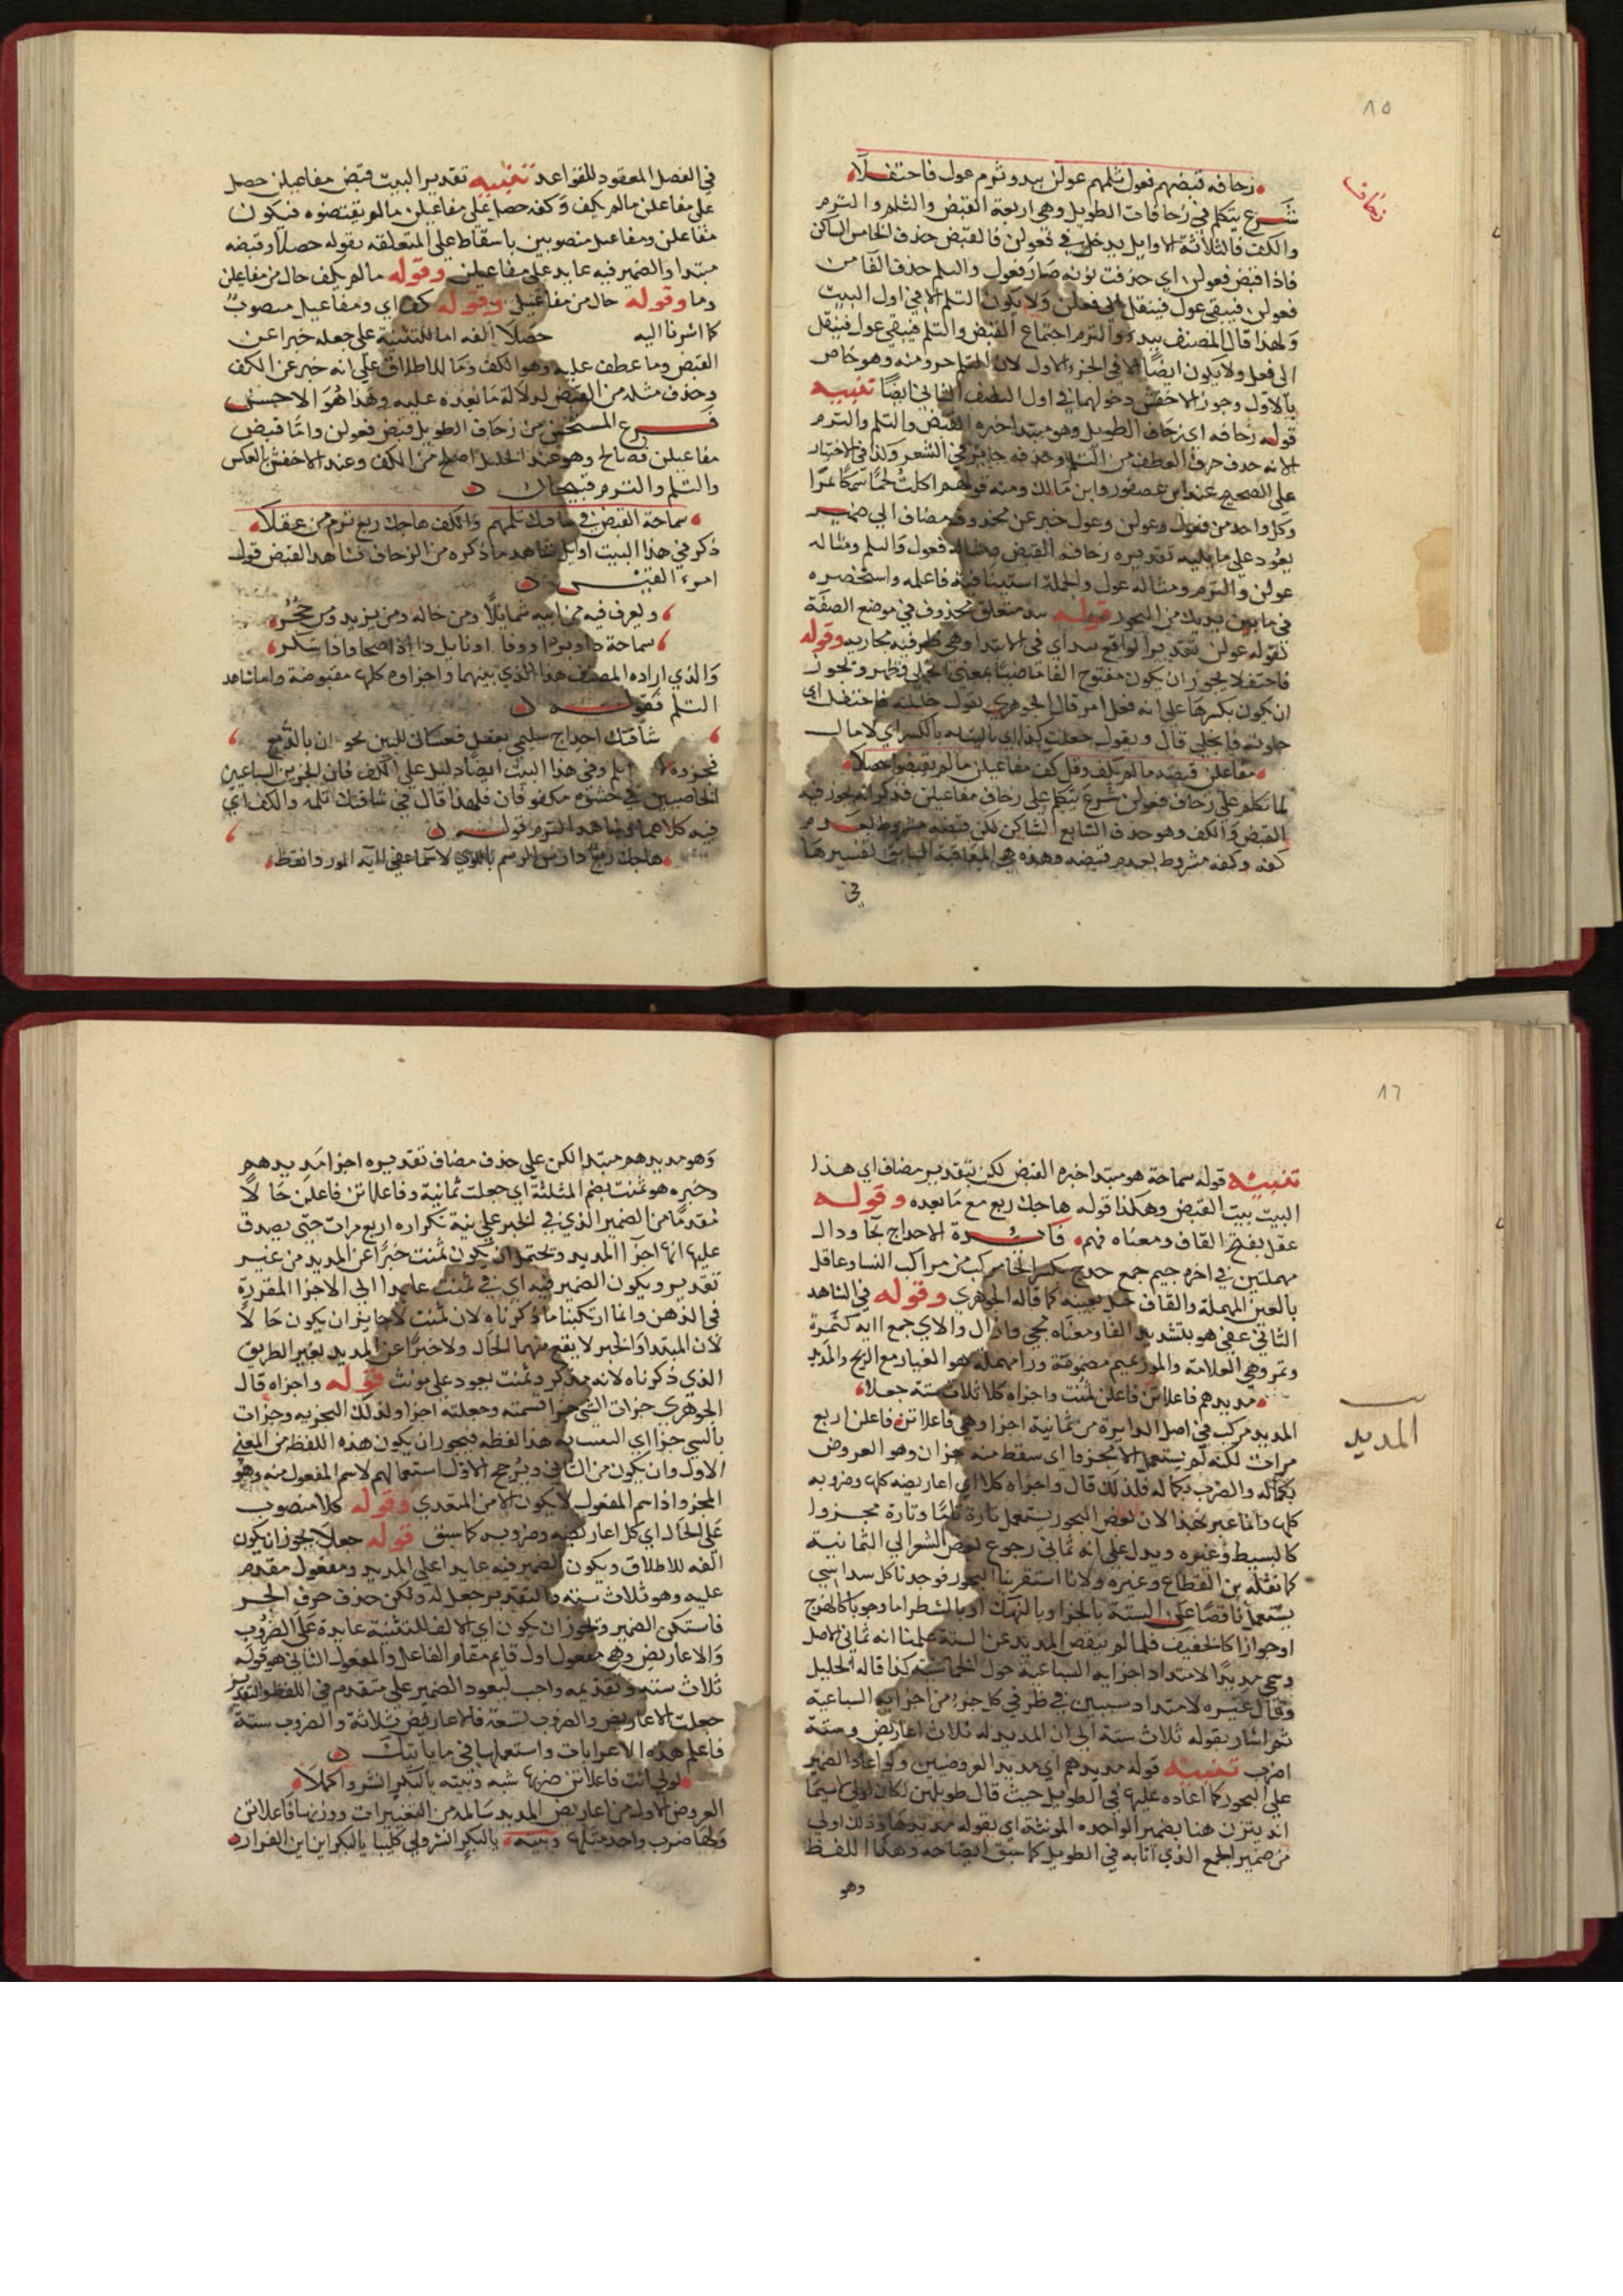 ١٥
زحاف
زحافه قبضهم فعول ثلمهم عولن ببدو ثرم عول فاحتفلا
شرع يتكلم في زحافات الطويل وهي اربعة القبض والثلم والثرم
والكف فالثلاثة الاوايل يدخل في فعولن فالقبض حذف الخامس الساكن
فاذا قبض فعولن اي حذفت نونه صار فعول والثلم حذف الفا من
فعولن فيبقى عول فينقل الى فعلن ولا يكون الثلم الا في اول البيت
ولهذا قال المصنف ببدء والثرم اجتماع القبض والثلم فيبقى عول فينقل
الى فعل ولا يكون ايضا الا في الجزء الاول لان الثلم جزء منه وهو خاص
بالاول وجوز الاخفش دخولهما في اول النصف الثاني ايضا تنبيه
قوله زحافه اي زحاف الطويل وهو مبتدا خبره القبض والثلم والثرم
الا انه حذف حرف العطف من الثلم وحذفه جايز في الشعر وكذا في الاختيار
على الصحيح عند ابن عصفور وابن مالك ومنه قولهم اكلت لحما سمكا تمرا
وكل واحد من فعول وعولن وعول خبر عن محذوف مضاف الى ضمير
يعود على ما يليه تقديره زحافهم القبض ومثاله فعول والثلم ومثاله
عولن والثرم ومثاله عول والجملة استينافية فاعلمه واستحضره
في ما بين يديك من البحور قوله ببدء متعلق بمحذوف في موضع الصفة
لقوله عولن تقديره الواقع ببدء اي في الابتدا وهي ظرفية مجازيه وقوله
فاحتفلا يجوز ان يكون مفتوح الفا ماضيا بمعنى اتجلى وظهر ويجوز
ان يكون بكسرها على انه فعل امر قال الجوهري يقول حفلته فاحتفل اي
جلوته فانجلى قال ويقول جعلت كذا اي باليت به بالكسر اي لا مال
مفاعلن قبضه ما لم يكف وقل كف مفاعيلن ما لم يقبضوا حصلا
لما تكلم على زحاف فعولن شرع يتكلم على زحاف مفاعيلن فذكر انه يجوز فيه
القبض والكف وهو حذف السابع الساكن لكن قبضه مشروط بعدم
كفه وكفه مشروط بعدم قبضه وهذه هي المعاقبة السابق تفسيرها
في
في الفصل المعقود للقواعد تنبيه تقدير البيت قبض مفاعيلن حصل
على مفاعلن ما لم يكف وكفه حصل على مفاعيلن ما لم يقبضوه فيكون
مفاعلن ومفاعيل منصوبين باسقاط على المتعلقه بقوله حصلا وقبضه
مبتدا والضمير فيه عايد على مفاعيلن وقوله ما لم يكف حال من مفاعلن
وما وقوله حال من مفاعيل وقوله كف اي ومفاعيل منصوب
كما اشرنا اليه حصلا الفه اما للتثنية على جعله خبرا عن
القبض وما عطف عليه وهو الكف وما للاطلاق على انه خبر عن الكف
وحذف مثله من القبض لدلالة ما بعده عليه وهذا هو الاحسن
فرع المستحسن من زحاف الطويل قبض فعولن واما قبض
مفاعيلن فصالح وهو عند الخليل اصلح من الكف وعند الاخفش بالعكس
والثلم والثرم قبيحان
سماحة القبض في شاقتك ثلمهم والكف هاجك ربع ثرم من عقلا
ذكر في هذا البيت اوايل شاهد ما ذكره من الزحاف فشاهد القبض قول
امرء القيس
وتعرف فيه من ابيه شمايلا ومن خاله ومن يزيد ومن حجر
سماحة ذا وبر ذا ووفا ذا ونايل ذا اذا صحا واذا سكر
والذي اراده المصنف هذا الذي بينهما واجزاوه كلها مقبوضة واما شاهد
الثلم فقوله
شاقتك احداج سليمى بعاقل فعيناك للبين تجودان بالدمع
فجزوه ثلم وفي هذا البيت ايضا دليل على الكف فان الجزين السباعيين
الخاصيين في حشوه مكفوفان فلهذا قال في شاقتك ثلمه والكف اي
فيه كلاهما وشاهد الثرم قوله
هاجك ربع دارس الرسم باللوى لاسما عفى ايه المور والقطر
١٦
المديد
تنبيه قوله سماحة هو مبتدا خبره القبض لكن بتقدير مضاف اي هذا
البيت بيت القبض وهكذا قوله هاجك ربع مع ما بعده وقوله
عقل بفتح القاف ومعناه فهم فائدة الاحداج بحا ودال
مهملتين في اخره جيم جمع حدج بكسر الحا مركب من مراكب النسا وعاقل
بالعين المهملة والقاف جبل بعينه كما قاله الجوهري وقوله في الشاهد
الثاني عفى هو بتشديد الفا ومعناه محي وازال والاي جمع اايه كثمرة
وثمر وهي العلامة والمور بميم مضمومة ورا مهملة هو الغبار مع الريح والمديد
مديدهم فاعلاتن فاعلن ثمنت واجزاه كلا ثلاث ستة جعلا
المديد مركب في اصل الدايرة من ثمانية اجزا وهي فاعلاتن فاعلن اربع
مرات لكنه لم يستعمل الا مجزوا اي سقط منه جزان وهو العروض
بكماله والضرب بكماله فلذلك قال واجزاه كلا اي اعاريضه كلها وضروبه
كلها وانما عبر بهذا لان بعض البحور يستعمل تارة تاما وتارة مجزوا
كالبسيط وغيره ويدل على انه ثماني رجوع بعض الشعر الى الثمانية
كما نقله ابن القطاع وغيره ولانا استقرينا البحور فوجدنا كل سداسي
يستعمل ناقصا عن الستة بالجزا او بالنهك او بالشطر اما وجوبا كالهزج
او جوازا كالخفيف فلما لم ينقص المديد عن الستة علمنا انه ثماني الاصل
وسمي مديدا لامتداد اجزايه السباعية حول الخماسية كذا قاله الخليل
وقال غيره لامتداد سببين في طرفي كل جزء من اجزايه السباعية
ثم اشار بقوله ثلاث ستة الى ان المديد له ثلاث اعاريض وستة
اضرب تنبيه قوله مديدهم اي مديد العروضيين ولو اعاد الضمير
على البحور كما اعاده عليها في الطويل حيث قال طويلهن لكان اولى لاسيما
انه يتزن هنا بضمير الواحده المونثة اي بقوله مديدها وذلك اولى
من ضمير الجمع الذي اتا به في الطويل كما سبق ايضاحه وهذا اللفظ
وهو
وهو مديدهم مبتدا لكن على حذف مضاف تقديره اجزا مديدهم
وخبره هو ثمنت بضم المثلثة اي جعلت ثمانية وفاعلاتن فاعلن حالا
مقدما من الضمير الذي في الخبر على نية تكراره اربع مرات حتى يصدق
عليها انها اجزا المديد ويحتمل ان يكون ثمنت خبرا عن المديد من غير
تقدير ويكون الضمير فيه اي في ثمنت عايدا الى الاجزا المقررة
في الذهن وانما ارتكبنا ما ذكرناه لان ثمنت لا جايز ان يكون حالا
لان المبتدا والخبر لا يقع منهما الحال ولا خبرا عن المديد بغير الطريق
الذي ذكرناه لانه مذكر وثمنت يعود على مونث قوله واجزاه قال
الجوهري جزات الشي جزا قسمته وجعلته اجزا وكذلك التجزيه وجزات
بالشي جزا اي اكتفيت به هذا لفظه فيجوز ان يكون هذه اللفظه من المعنى
الاول وان يكون من الثاني ويرجح الاول استعمالهم لاسم المفعول منه وهو
المجزو اذ اسم المفعول لا يكون الا من المتعدي وقوله كلا منصوب
على الحال اي كل اعاريضه وضروبه كما سبق قوله جعلا يجوز ان يكون
الفه للاطلاق ويكون الضمير فيه عايدا على المديد ومفعول مقدم
عليه وهو ثلاث ستة والتقدير جعل له ولكن حذف حرف الجر
فاستكن الضمير ويجوز ان يكون اي الالف للتثنية عايدة على الضروب
والاعاريض وهي مفعول اول قايم مقام الفاعل والمفعول الثاني هو قوله
ثلاث ستة وتقديمه واجب ليعود الضمير على متقدم في اللفظ والتقدير
جعلت الاعاريض والضروب تسعة فالاعاريض ثلاثة والضروب ستة
فاعلم هذه الاعرابات واستعملها في ما ياتيك
لولى ائت فاعلاتن ضربها شبه وبيته يالبكر انشروا كملا
العروض الاولى من اعاريض المديد سالمة من التغييرات ووزنها فاعلاتن
ولها ضرب واحد مثلها وبيته يالبكر انشروا لي كليبا يالبكر اين اين الفرار